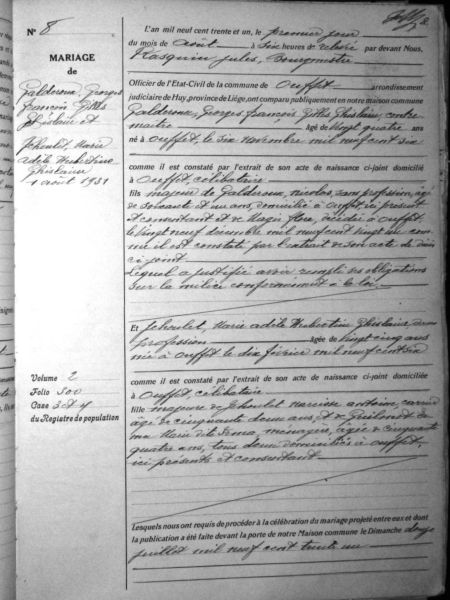 N° 8
MARIAGE
de
Galderoux, Georges
françois Gilles
Ghislain et
Jehoulet, Marie
adèle Hubertine
Ghislaine
1 août 1931
Volume 2
Folio 300
Case 3 et 4
du Registre de population
L'an mil neuf cent trente et un, le premier jour
du mois de août à six heures de relevée par devant Nous,
jules, bourgmestre
Officier de l'Etat-Civil de la commune de Ouffet arrondissement
judiciaire de Huy, province de Liége, ont comparu publiquement en notre maison commune
Galderoux, Georges françois Gilles Ghislain, contre
maître âgé de vingt quatre ans
né à Ouffet, le six novembre mil neuf cent six
comme il est constaté par l'extrait de son acte de naissance ci-joint domicilié
à Ouffet, célibataire
fils majeur de Galderoux, nicolas, sans profession, âgé
de soixante et un ans, domicilié à Ouffet ici présent
et consentant et de flore, décédée à Ouffet,
le vingt neuf décembre mil neuf cent vingt un com
me il est constaté par l'extrait de son acte de décès
ci joint
Lequel a justifié avoir rempli ses obligations
sur la milice conformément à la loi
Et Jehoulet, Marie adèle Hubertine Ghislaine, sans
profession âgée de vingt cinq ans
née à Ouffet le dix février mil neuf cent six
comme il est constaté par l'extrait de son acte de naissance ci-joint domiciliée
à Ouffet, célibataire
fille majeure de Jehoulet narcisse antoine, carrier
âgé de cinquante deux ans et de
Marie dite ménagère, âgée de cinquante
quatre ans, tous deux domiciliés à Ouffet,
ici présents et consentant
Lesquels nous ont requis de procéder à la célébration du mariage projeté entre eux et dont
la publication a été faite devant la porte de notre Maison commune le Dimanche douze
juillet mil neuf cent trente un